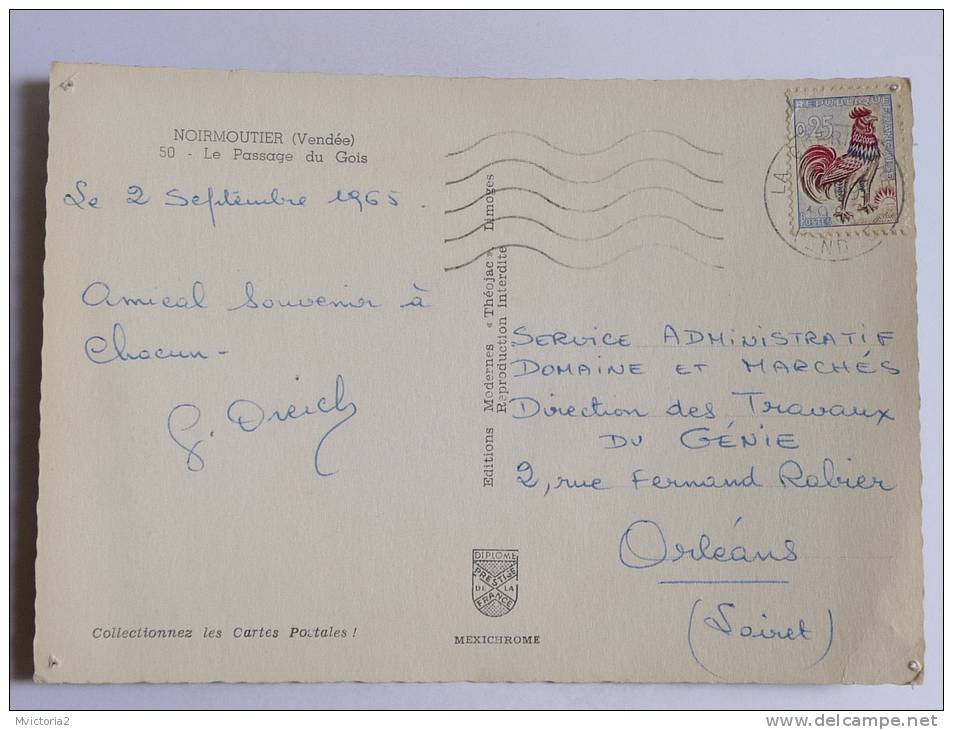 NOIRMOUTIER (Vendée)
50 - Le Passage du Gois
Le 2 Septembre 1965.
Amical Souvenir à
Chacun -
G.
Editions Modernes « Théojac », Limoges
Reproduction interdite
REPUBLIQUE FRANÇAISE
0,25
POSTES
LA
SERVICE ADMINISTRATIF
DOMAINE ET MARCHÉS
Direction des Travaux
DU GÉNIE
2, rue Fernand Rabier
Orléans
(Loiret)
DIPLOME
PRESTIJE
DE LA
FRANCE
MEXICHROME
Collectionnez les Cartes Postales !
Mvictoria2
delcampe.net